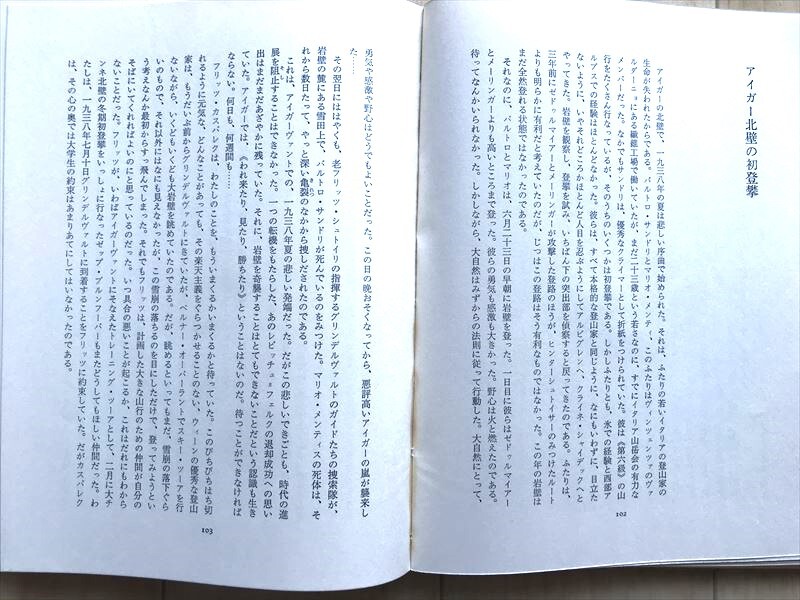 アイガー北壁の初登攀
アイガーの北壁で、一九三八年の夏は悲しい序曲で始められた。それは、ふたりの若いイタリアの登山家の
生命が失われたからである。バルトロ・サンドリとマリオ・メンティ、このふたりはヴィンツェンツァのヴァ
ルダーニョにある繊維工場で働いていたが、まだ二十三歳という若さなのに、すでにイタリア山岳会の有力な
メンバーだった。なかでもサンドリは、優秀なクライマーとして折紙をつけられていた。彼は《第六級》の山
行をたくさん行なっているが、そのうちのいくつかは初登攀である。しかしふたりとも、氷での経験と西部ア
ルプスでの経験はほとんどなかった。彼らは、すべて本格的な登山家と同じように、なにもいわずに、目立た
ないように、いやそれどころかほとんど人目を忍ぶようにしてアルピグレンへ、クライネ・シャイデックへと
やってきた。岩壁を観察し、登攀を試み、いちばん下の突出部を偵察すると戻ってきたのである。ふたりは、
三年前にゼドゥルマイアーとメーリンガーが攻撃した登路のほうが、ヒンターシュトイサーのみつけたルート
よりも明らかに有利だと考えていたのだが、じつはこの登路はそう有利なものではなかった。この年の岩壁は
まだ全然登れる状態ではなかったのである。
それなのに、バルトロとマリオは、六月二十三日の早朝に岩壁を登った。一日目に彼らはゼドゥルマイアー
とメーリンガーよりも高いところまで登った。彼らの勇気も感激も大きかった。野心は火と燃えたのである。
待ってなんかいられなかった。しかしながら、大自然はみずからの法則に従って行動した。大自然にとって、
102
勇気や感激や野心はどうでもよいことだった。この日の晩おそくなってから、悪評高いアイガーの嵐が襲来し
た……
その翌日にははやくも、老フリッツ・シュトイリの指揮するグリンデルヴァルトのガイドたちの捜索隊が、
岩壁の麓にある雪田上で、バルトロ・サンドリが死んでいるのをみつけた。マリオ・メンティスの死体は、そ
れから数日たって、やっと深い亀裂のなかから捜しだされたのである。
これは、アイガーヴァントでの、一九三八年夏の悲しい発端だった。だがこの悲しいできごとも、時代の進
展を阻止することはできなかった。一つの転機をもたらした、あのレビッチュ＝フェルクの退却成功への思い
出はまだまだあざやかに残っていた。それに、岩壁を奇襲することはとてもできないことだという認識も生き
ていた。アイガーでは、《われ来たり、見たり、勝ちたり》ということはないのだ。待つことができなければ
ならない。何日も、何週間も……
フリッツ・カスパレクは、わたしのことを、もういまくるかいまくるかと待っていた。このぴちぴちはち切
れるように元気な、どんなことがあっても、その楽天主義をぐらつかせることのない、ウィーンの優秀な登山
家は、もうだいぶ前からグリンデルヴァルトにきていたが、ベルナー・オーバーラントでスキー・ツーアを行
ないながら、いくどもいくども大岩壁を眺めていたのである。だが、眺めるといってもまだ、雪崩の落下ぐら
いのもので、それ以外にはなにも見えなかったが、この雪崩の落ちるのを目にしただけで、登ってみようとい
う考えなんか最初からすっ飛んでしまった。それでもフリッツは、計画した大きな山行のための仲間が自分の
そばにいてくれればよいのにと思っているのだった。いつ具合の悪いことが起こるか、これはだれにもわから
ないことだった。フリッツが、いわばアイガーヴァントにそなえたトレーニング・ツーアとして、二月に大チ
ンネ北壁の冬期初登攀をいっしょに行なったゼップ・ブルンフーバーもまたどうしてもほしい仲間だった。わ
たしは、一九三八年七月十日グリンデルヴァルトに到着することをフリッツに約束していた。だがカスパレク
は、その心の奥では大学生の約束はあまりあてにしてはいなかったのである。
103